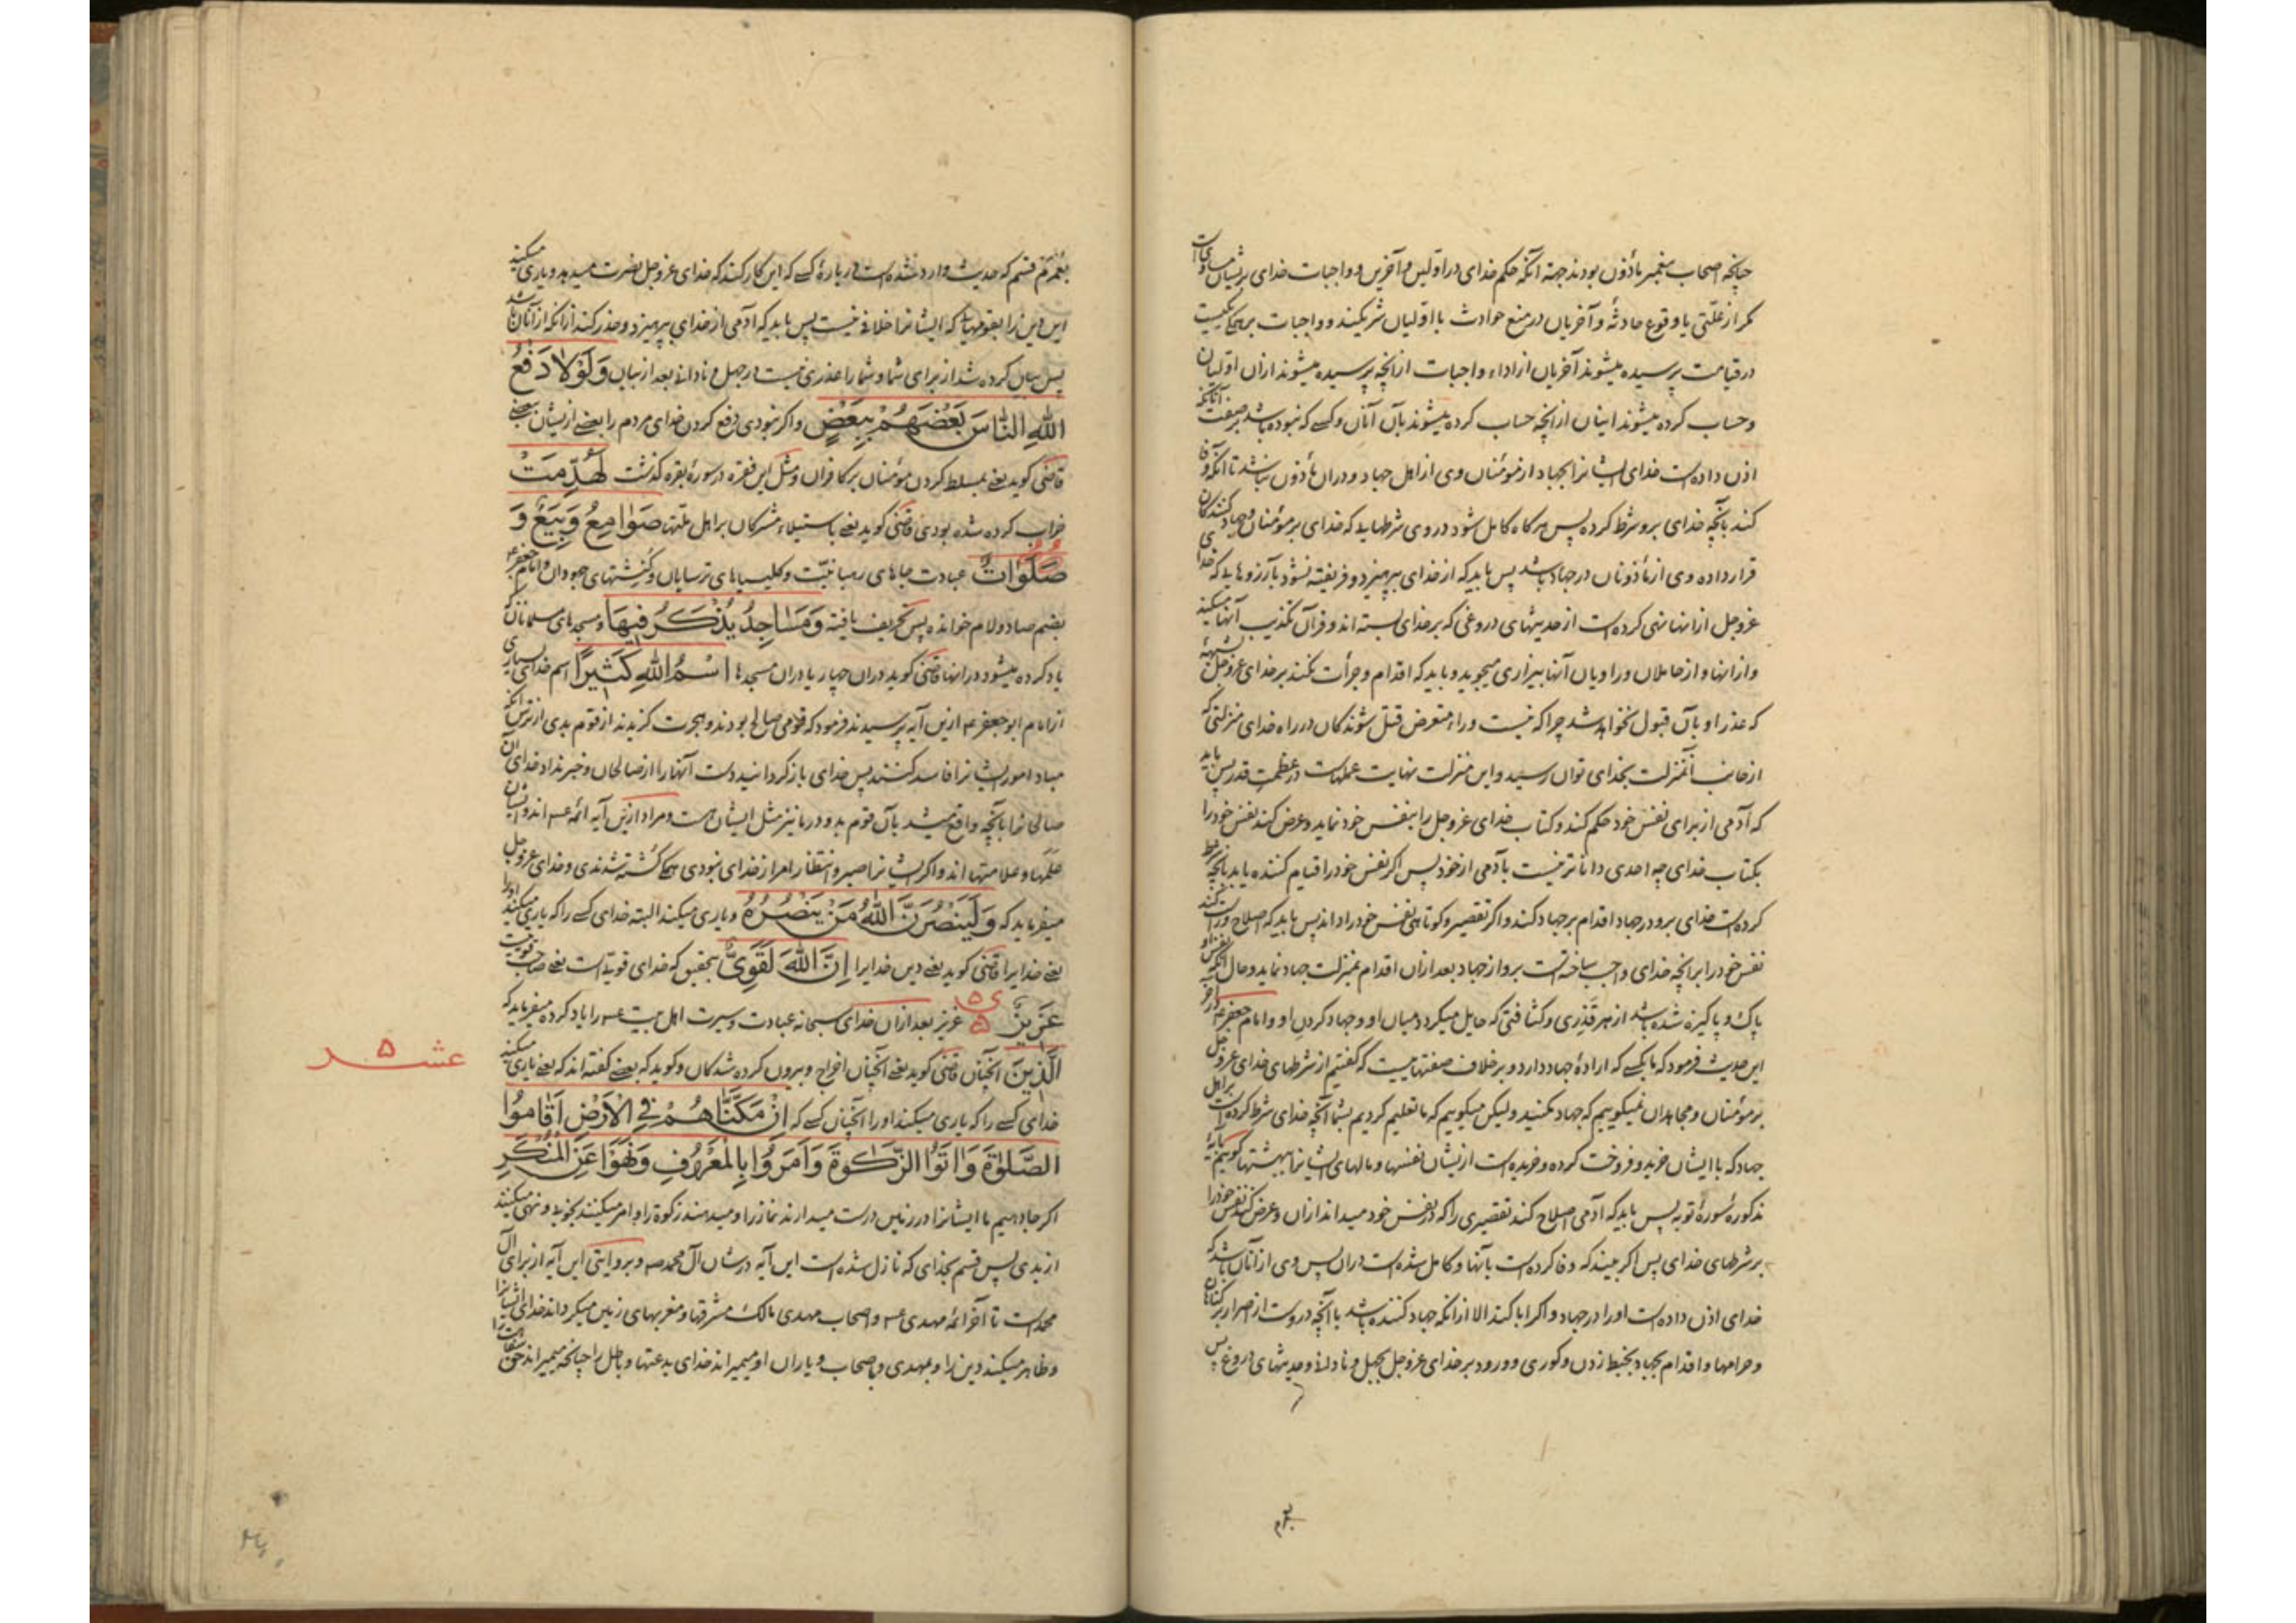 چنانچه اصحاب پیغمبر مأذون بودند جهة آنکه حکم خدای در اولین و آخرین و واجبات خدای بر ایشان مساوی است
مکر از علّتی یا وقوع حادثهٔ و آخریان در منع حوادث با اولیان شریکند و واجبات بر همه یکیست
در قیامت پرسیده میشوند آخریان از اداء واجبات از انچه پرسیده میشوند ازان اولیان
و حساب کرده میشوند اینان از انچه حساب کرده میشوند بآن آنان و کسی که نبوده باشد بر صفت آنانکه
اذن داده است خدای ایشانرا بجهاد از مؤمنان وی از اهل جهاد و دران مأذون نباشد تا آنکه وفا
کند بآنچه خدای برو شرط کرده پس هرکاه کامل شود در وی شرطهایی که خدای بر مؤمنان و جهاد کنندکان
قرار داده وی از مأذونان در جهاد باشد پس باید که از خدای بپرهیزد و فریفته نشود بآرزوهایی که خدای
عزوجل ازانها نهی کرده است از حدیثهای دروغی که بر خدای بسته اند و قرآن تکذیب آنها میکند
و ازانها و از حاملان و راویان آنها بیزاری میجوید و باید که اقدام و جرأت نکند بر خدای عزوجل بشبههٔ
که عذر او بآن قبول نخواهد شد چرا که نیست وراء متعرض قتل شوندکان در راه خدای منزلتی که
از جانب آنمنزلت بخدای توان رسید و این منزلت نهایت عملهاست در عظمت قدر پس باید
که آدمی از برای نفس خود حکم کند و کتاب خدای عزوجل را بنفس خود نماید و عرض کند نفس خود را
بکتاب خدای چه احدی داناتر نیست بآدمی از خود پس اکر نفس خود را قیام کننده یابد بانچه شرط
کرده است خدای برو در جهاد اقدام بر جهاد کند و اکر تقصیر و کوتاهی نفس خود را داند پس باید که اصلاح کند
نفس خود را بر انچه خدای واجب ساخته است برو از جهاد بعد ازان اقدام بمنزلت جهاد نماید و حال آنکه نفس او
پاک و پاکیزه شده باشد از هر قذری و کثافتی که حایل میکردد میان او و جهاد کردن او و امام جعفر ع در آخر
این حدیث فرمود که ما بکسی که ارادهٔ جهاد دارد و بر خلاف صفتهاییست که کفتیم از شرطهای خدای عزوجل
بر مؤمنان و مجاهدان نمیکوییم که جهاد مکنید و لیکن میکوییم که ما تعلیم کردیم بشما آنچه خدای شرط کرده است بر اهل
جهاد که با ایشان خرید و فروخت کرده و خریده است از یشان نفسها و مالهای ایشانرا ببهشتها کوییم بآیهٔ
مذکورهٔ سورهٔ توبه پس باید که آدمی اصلاح کند تقصیری را که در نفس خود میداند ازان و عرض کند نفس خود را
بر شرطهای خدای پس اکر بیند که وفا کرده است بآنها و کامل شده است دران پس وی از آنان باشد که
خدای اذن داده است او را در جهاد و اکر ابا کند الا ازانکه جهاد کننده باشد با آنچه دروست از اصرار بر کناهان
و حرامها و اقدام بجهاد بخبط زدن و کوری و ورود بر خدای عزوجل بجهل و نادانی و حدیثهای دروغ پس
بعُمرم قسم که حدیث وارد شده است در بارهٔ کسی که این کار کند که خدای عزوجل نصرت میدهد و یاری میکند
این دین را بقومهایی که ایشانرا خلاقی نیست پس باید که آدمی از خدای بپرهیزد و حذر کند ازانکه از آنان باشد
پس بیان کرده شد از برای شما و شما را عذری نیست در جهل و نادانی بعد از بیان وَلَوْلَا دَفْعُ
اللهِ النَّاسَ بَعْضَهُمْ بِبَعْضٍ و اکر نبودی دفع کردن خدای مردم را بعضی از یشان ببعضی
قاضی کوید یعنی بمسلط کردن مؤمنان بر کافران و مثل این فقره در سورهٔ بقره کذشت لَهُدِّمَتْ
خراب کرده شده بودی قاضی کوید یعنی باستیلاء مشرکان بر اهل ملّتها صَوَامِعُ وَبِيَعٌ وَ
صَلَوَاتٌ عبادت جاهای رهبانیّت و کلیسیاهای ترسایان و کنشتهای جهودان و امام جعفر ع
بضم صاد و لام خوانده پس تحریف یافته وَمَسَاجِدُ يُذْكَرُ فِيهَا و مسجدهای مسلمانان که
یاد کرده میشود در انها قاضی کوید دران چهار یا دران مسجدها اسْمُ اللهِ كَثِيرًا اسم خدای بسیاری
از امام ابو جعفر ع ازین آیه پرسیدند فرمود که قومی صالح بودند و هجرت کزیدند از قوم بدی از ترس آنکه
مبادا امور ایشانرا فاسد کنند پس خدای باز کردانید دست آنها را از صالحان و خبر نداد خدای آن
صالحانرا بانچه واقع میشد بآن قوم بد و در ما نیز مثل ایشان هست و مراد ازین آیه ائمه ع‌اند و ایشان
علَمها و علامتها اند و اکر ایشانرا صبر و انتظار امر از خدای نبودی همه کشته شدندی و خدای عزوجل
میفرماید که وَلَيَنْصُرَنَّ اللهُ مَنْ يَنْصُرُهُ و یاری میکند البته خدای کسی را که یاری میکند او را
یعنی خدایرا قاضی کوید یعنی دین خدایرا اِنَّ اللهَ لَقَوِيٌّ بتحقیق که خدای قویّ است یعنی صاحب قوتیست
عَزِيزٌ ۵ عزیز بعد ازان خدای سبحانه عبادت و سیرت اهل بیت ع را یاد کرده میفرماید که
عشر ۵
اَلَّذِينَ آنچنان قاضی کوید یعنی آنچنان اخراج و بیرون کرده شدکان و کوید که بعضی کفته اند که یعنی یاری میکند
خدای کسی را که یاری میکند او را آنچنان کسی که اِنْ مَكَّنَّاهُمْ فِي الْاَرْضِ اَقَامُوا
الصَّلٰوةَ وَاٰتَوُا الزَّكٰوةَ وَاَمَرُوا بِالْمَعْرُوفِ وَنَهَوْا عَنِ الْمُنْكَرِ
اکر جا دهیم ما ایشانرا در زمین درست میدارند نماز را و میدهند زکوة را و امر میکنند بخوبی و نهی میکنند
از بدی پس قسم بخدای که نازل شده است این آیه در شان آل محمد ص و بروایتی این آیه از برای آل
محمد است تا آخر ائمه مهدی ع و اصحاب مهدی مالک مشرقها و مغربهای زمین میکرداند خدای ایشانرا
و ظاهر میکند دین را و بمهدی و باصحاب و یاران او میمیراند خدای بدعتها و باطل را چنانچه میمیراند حق